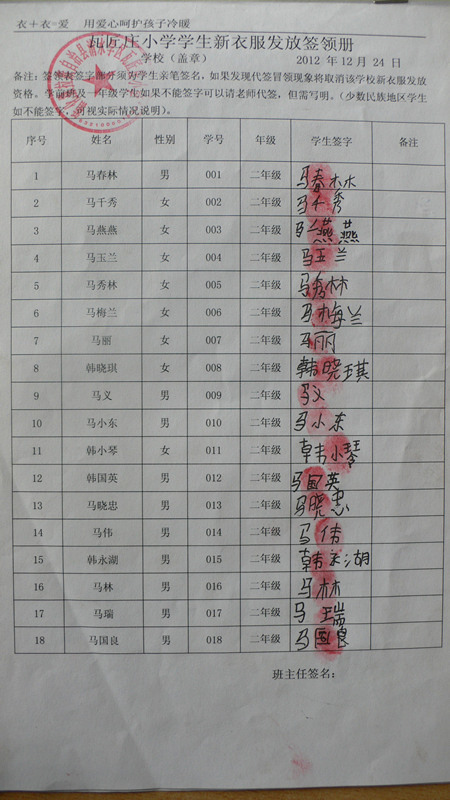 衣+衣=爱 用爱心呵护孩子冷暖
瓦匠庄小学学生新衣服发放签领册
学校（盖章） 2012 年 12 月 24 日
备注：签领表签字部分须为学生亲笔签名，如果发现代签冒领现象将取消该学校新衣服发放
资格。学前班及一年级学生如果不能签字可以请老师代签，但需写明。（少数民族地区学生
如不能签字，可视实际情况说明）。
序号 姓名 性别 学号 年级 学生签字 备注
1 马春林 男 001 二年级 马春林
2 马千秀 女 002 二年级 马千秀
3 马燕燕 女 003 二年级 马燕燕
4 马玉兰 女 004 二年级 马玉兰
5 马秀林 女 005 二年级 马秀林
6 马梅兰 女 006 二年级 马梅兰
7 马丽 女 007 二年级 马丽
8 韩晓琪 女 008 二年级 韩晓琪
9 马义 男 009 二年级 马义
10 马小东 男 010 二年级 马小东
11 韩小琴 女 011 二年级 韩小琴
12 韩国英 男 012 二年级 马国英
13 马晓忠 男 013 二年级 马晓忠
14 马伟 男 014 二年级 马伟
15 韩永湖 男 015 二年级 韩永湖
16 马林 男 016 二年级 马林
17 马瑞 男 017 二年级 马瑞
18 马国良 男 018 二年级 马国良
班主任签名：